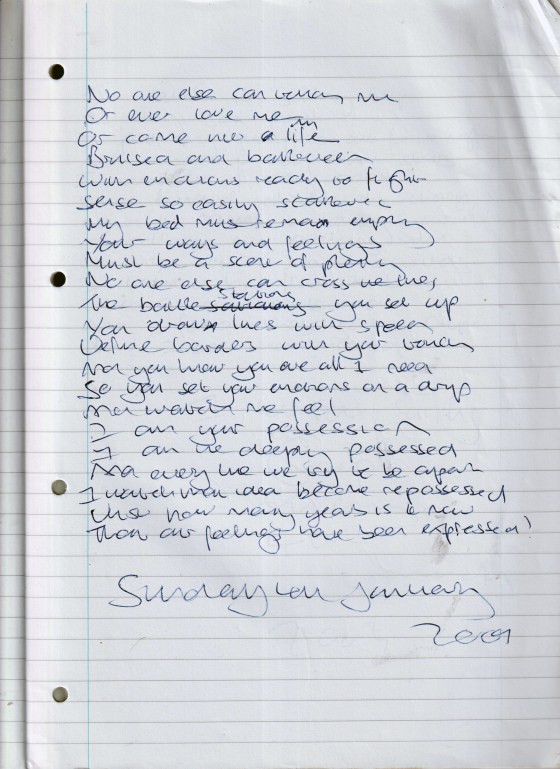 No one else can touch me
Or ever love me
Or come into my life
Bruised and battered
with emotions ready to fight
Sense so easily scattered
My bed must remain empty
Your ways and feelings
Must be a score of plenty
No one else can cross the lines
The battle stations you set up
You draw lines with speech
Define borders with your touch
And you know you are all I need
So you set your emotions on a drip
And watch me feel
I am your possession
I am the deeply possessed
And every time we try to be apart
I watch that idea become repossessed
how many years is it now
That our feelings have been expressed!
Sunday 4th January
2009